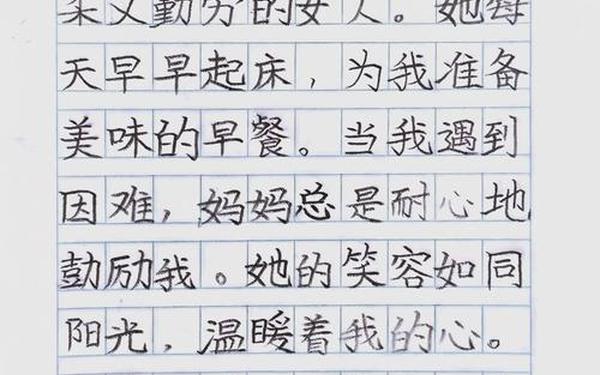 柔又勤劳的女人。她每
天早早起床，为我准备
美味的早餐。当我遇到
因难，妈妈总是耐心地
鼓励我。她的笑容如同
阳光，温暖着我的心。